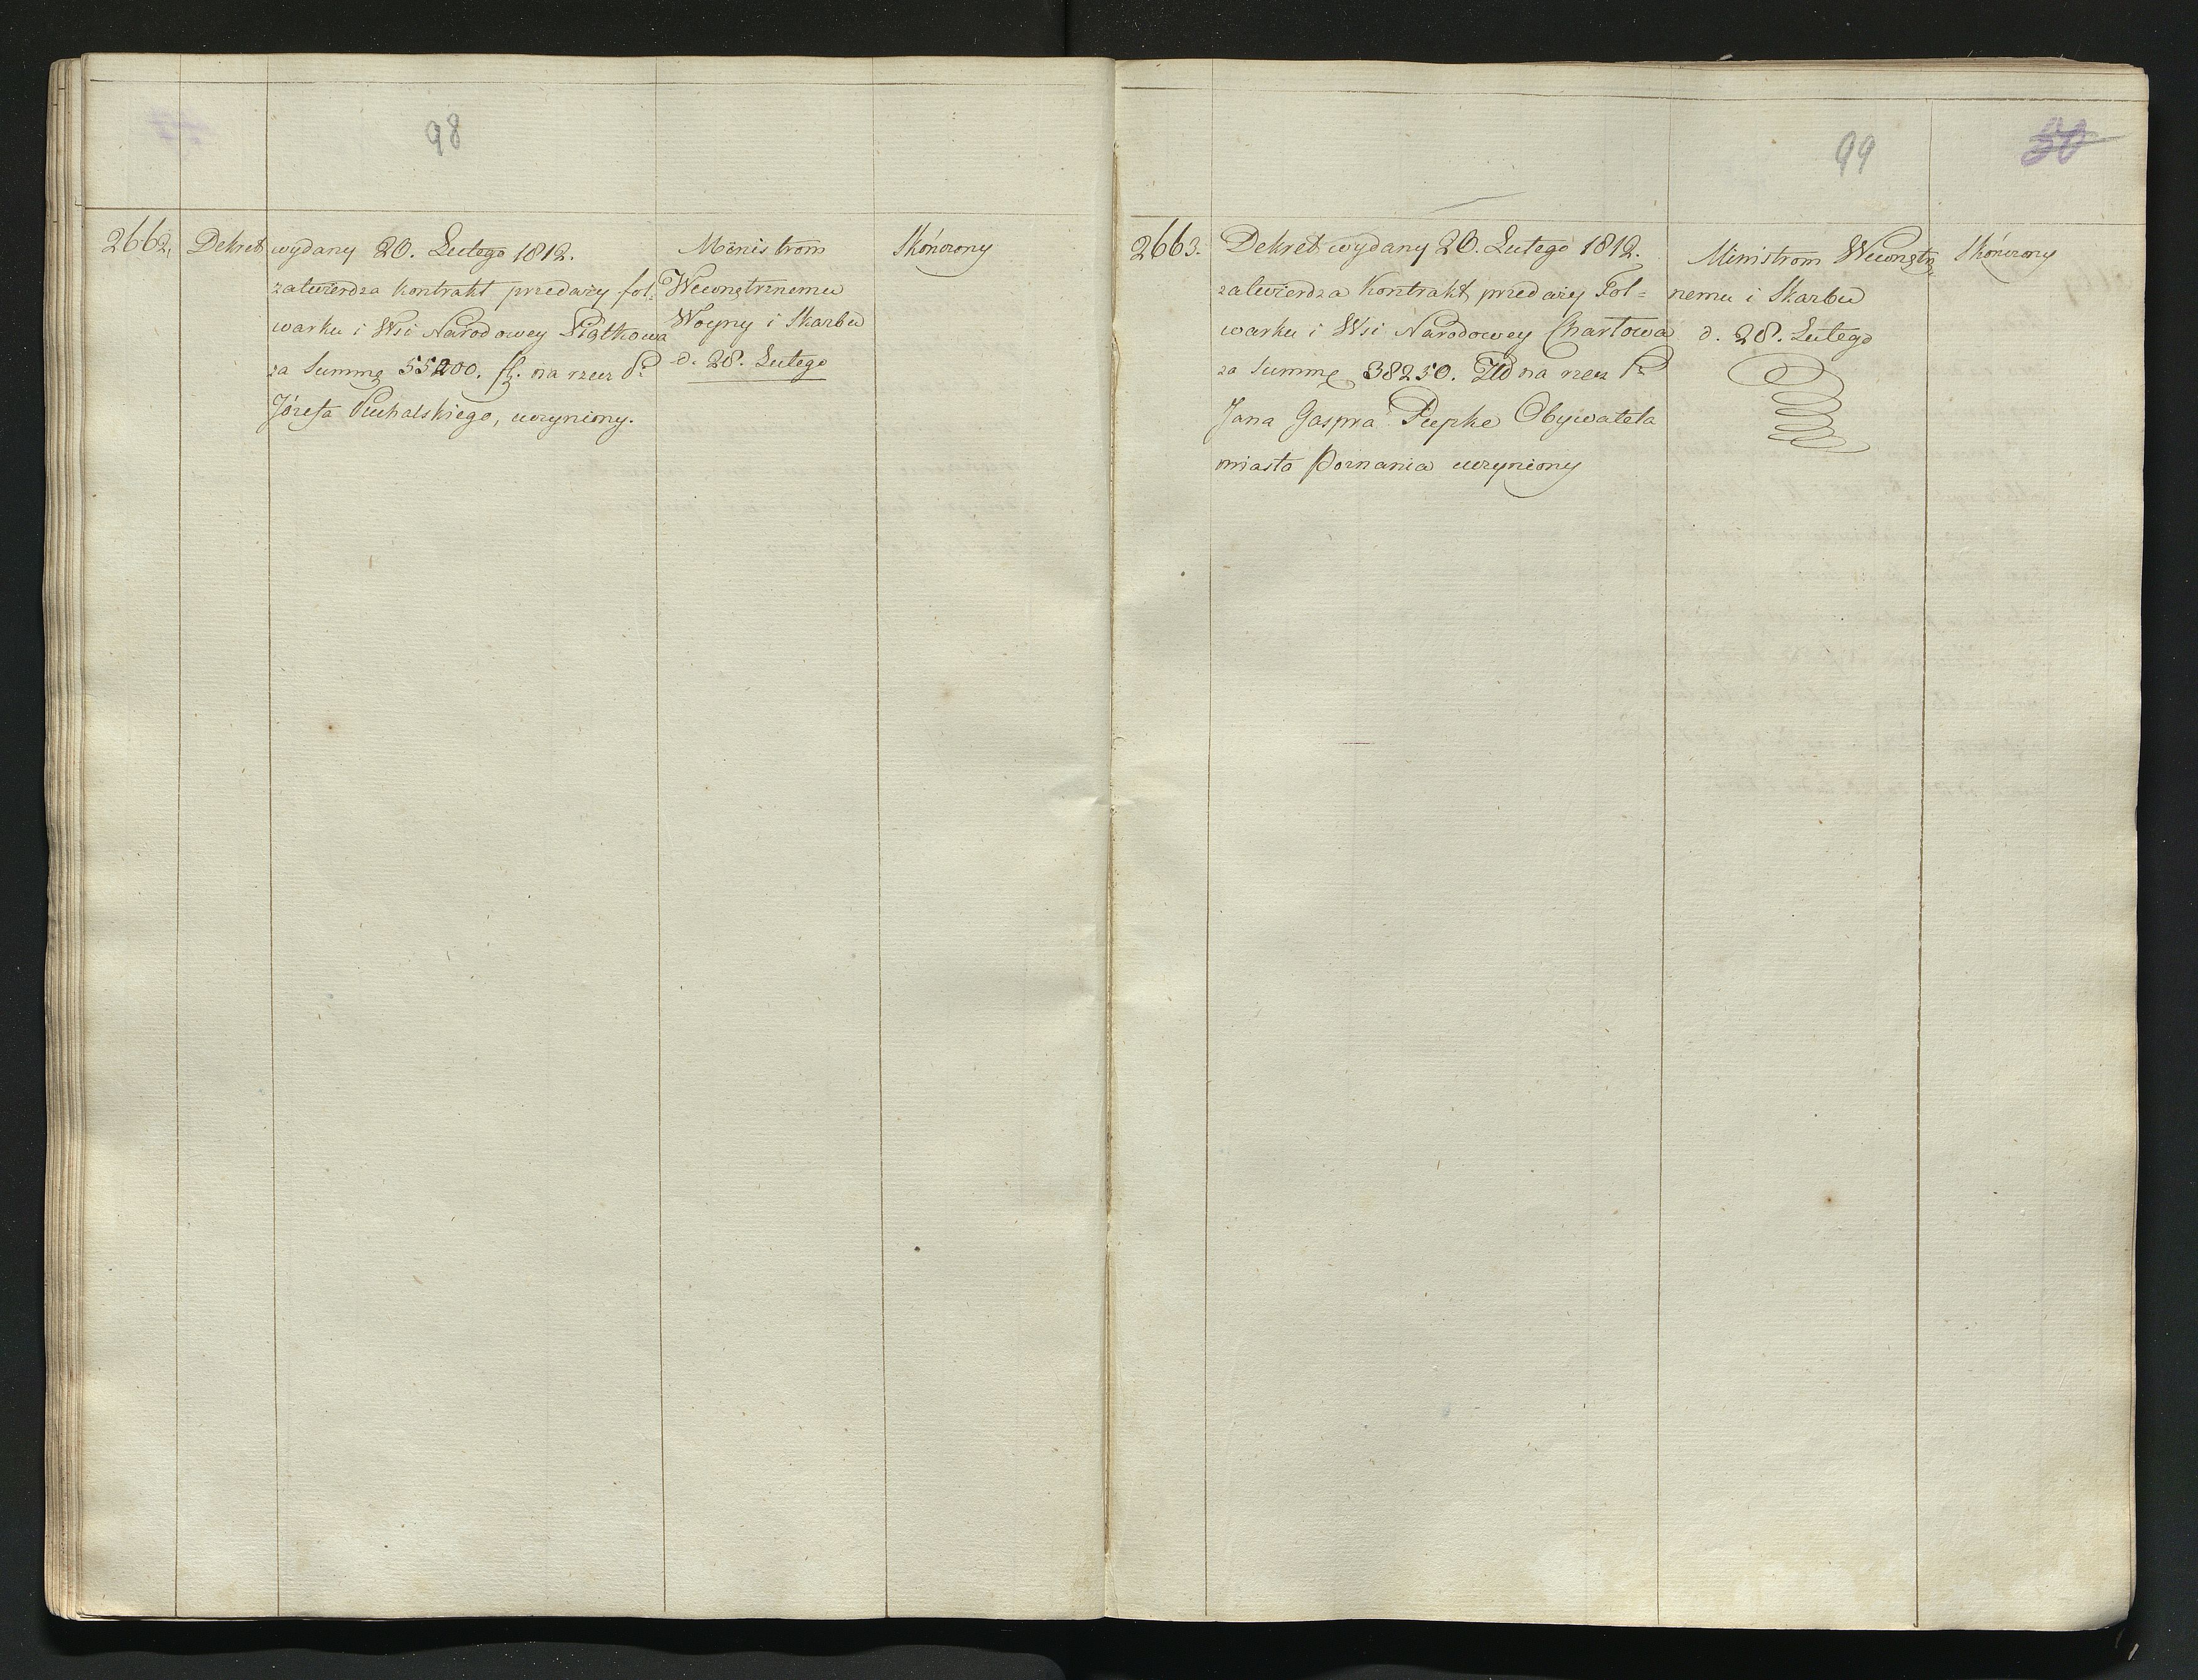 98
2662. Dekret wydany 20. Lutego 1812.
zatwierdza kontrakt przedaży fol-
warku i Wsi Narodowey Piątkowa
za Summę 55200. fl. na rzecz P.
Józefa Puchalskiego, uczyniony.
Ministrom
Wewnętrznemu
Woyny i Skarbu
d. 28. Lutego
Skończony
99
30
2663. Dekret wydany 20. Lutego 1812.
zatwierdza Kontrakt przedaży Fol=
warku i Wsi Narodowey Chartowa
za Summę 38250. Złł na rzecz P.
Jana Gaspra Piepke Obywatela
miasta Poznania uczyniony
Ministrom Wewnętrz
nemu i Skarbu
d. 28. Lutego
Skończony